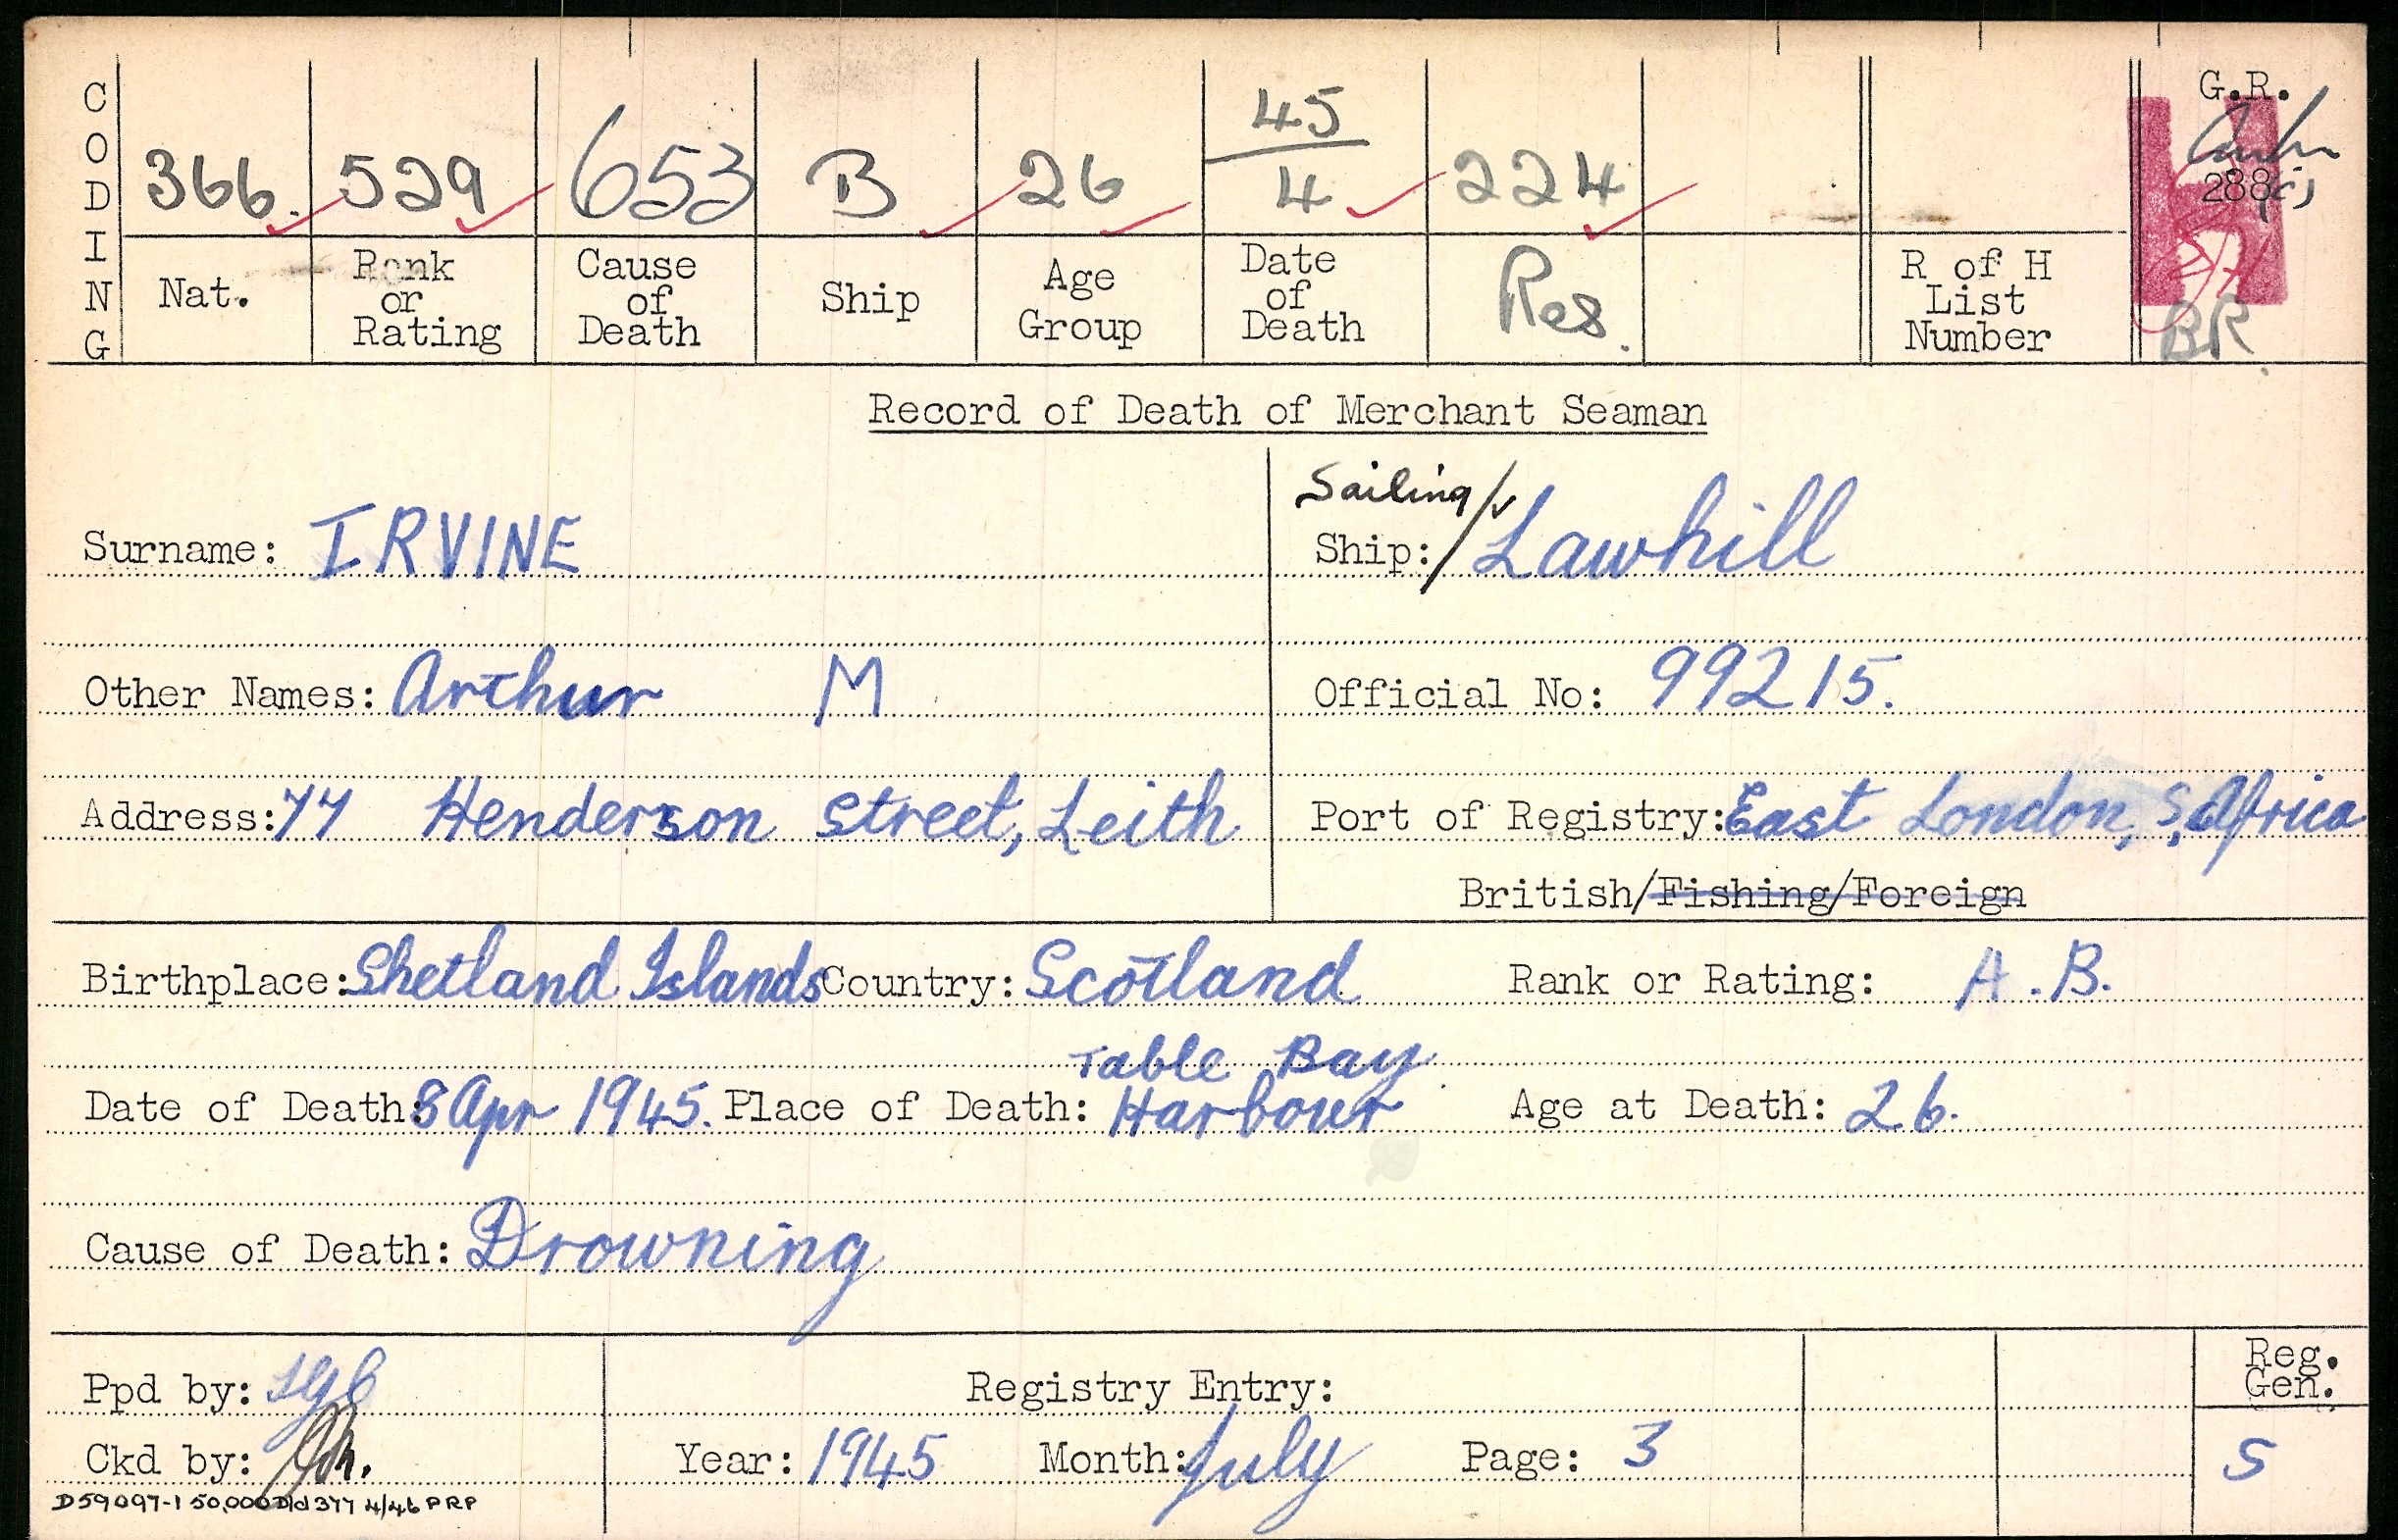 CODING
366. 529 653 B 26 45/4 224
Nat. Rank or Rating Cause of Death Ship Age Group Date of Death Res. R of H List Number G.R. 288(c) BR
Record of Death of Merchant Seaman
Surname: IRVINE
Sailing/v
Ship: Lawhill
Other Names: Arthur M
Official No: 99215.
Address: 77 Henderson Street, Leith
Port of Registry: East London, S. Africa
British/Fishing/Foreign
Birthplace: Shetland Islands Country: Scotland Rank or Rating: A.B.
Table Bay
Date of Death: 8 Apr 1945. Place of Death: Harbour Age at Death: 26.
Cause of Death: Drowning
Ppd by:
Registry Entry:
Reg. Gen.
Ckd by:
Year: 1945 Month: July Page: 3
S
D59097-1 50,000 D/d 377 4/46 PRP